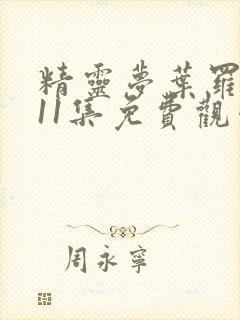 精靈夢葉羅
11集免費觀
周永寧